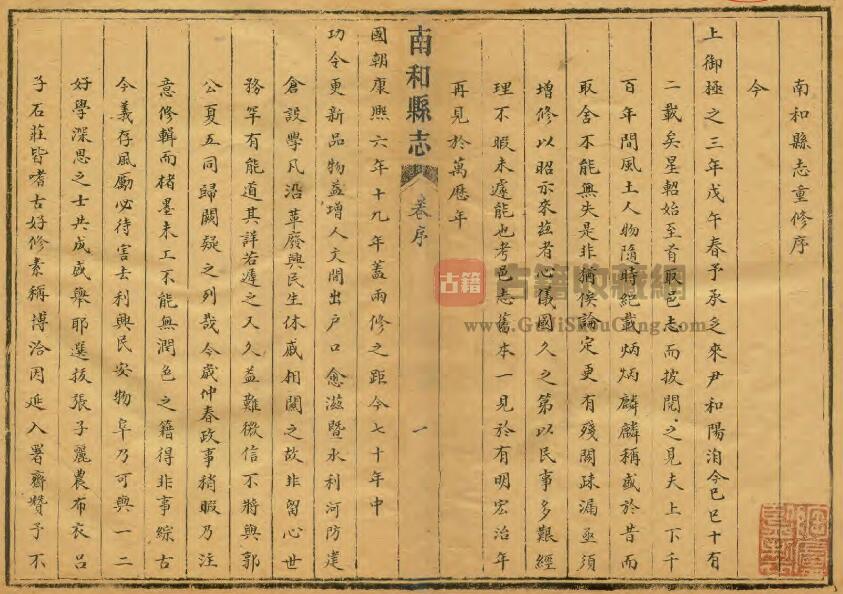 南和縣志重修序
今
上御極之三年戊午春予承乏來尹和陽洎今己巳十有
二載矣星軺始至首取邑志而披閱之見夫上下千
百年間風土人物隨時紀載炳炳麟麟稱盛於昔而
取舍不能無失是非猶俟論定更有殘闕疎漏亟須
增修以昭示來茲者心儀國久之第以民事多艱經
理不暇未遽能也考邑志舊本一見於有明宏治年
再見於萬歷年
南和縣志
卷序
一
國朝康熙六年十九年蓋兩修之距今七十年中
功令更新品物益增人文間出戶口愈滋暨水利河防建
倉設學凡沿革廢興民生休戚相關之故非留心世
務罕有能道其詳若遲之又久益難徵信不將與郭
公夏五同歸闕疑之列哉今歲仲春政事稍暇乃注
意修輯而楮墨未工不能無潤色之籍得非事綜古
今義存風勵必待害去利興民安物阜乃可與一二
好學深思之士共成盛舉耶選拔張子麗農布衣呂
子石莊皆嗜古好修素稱博洽因延入署齋贊予不
古籍
古籍收藏網
www.GuJiShouCang.com